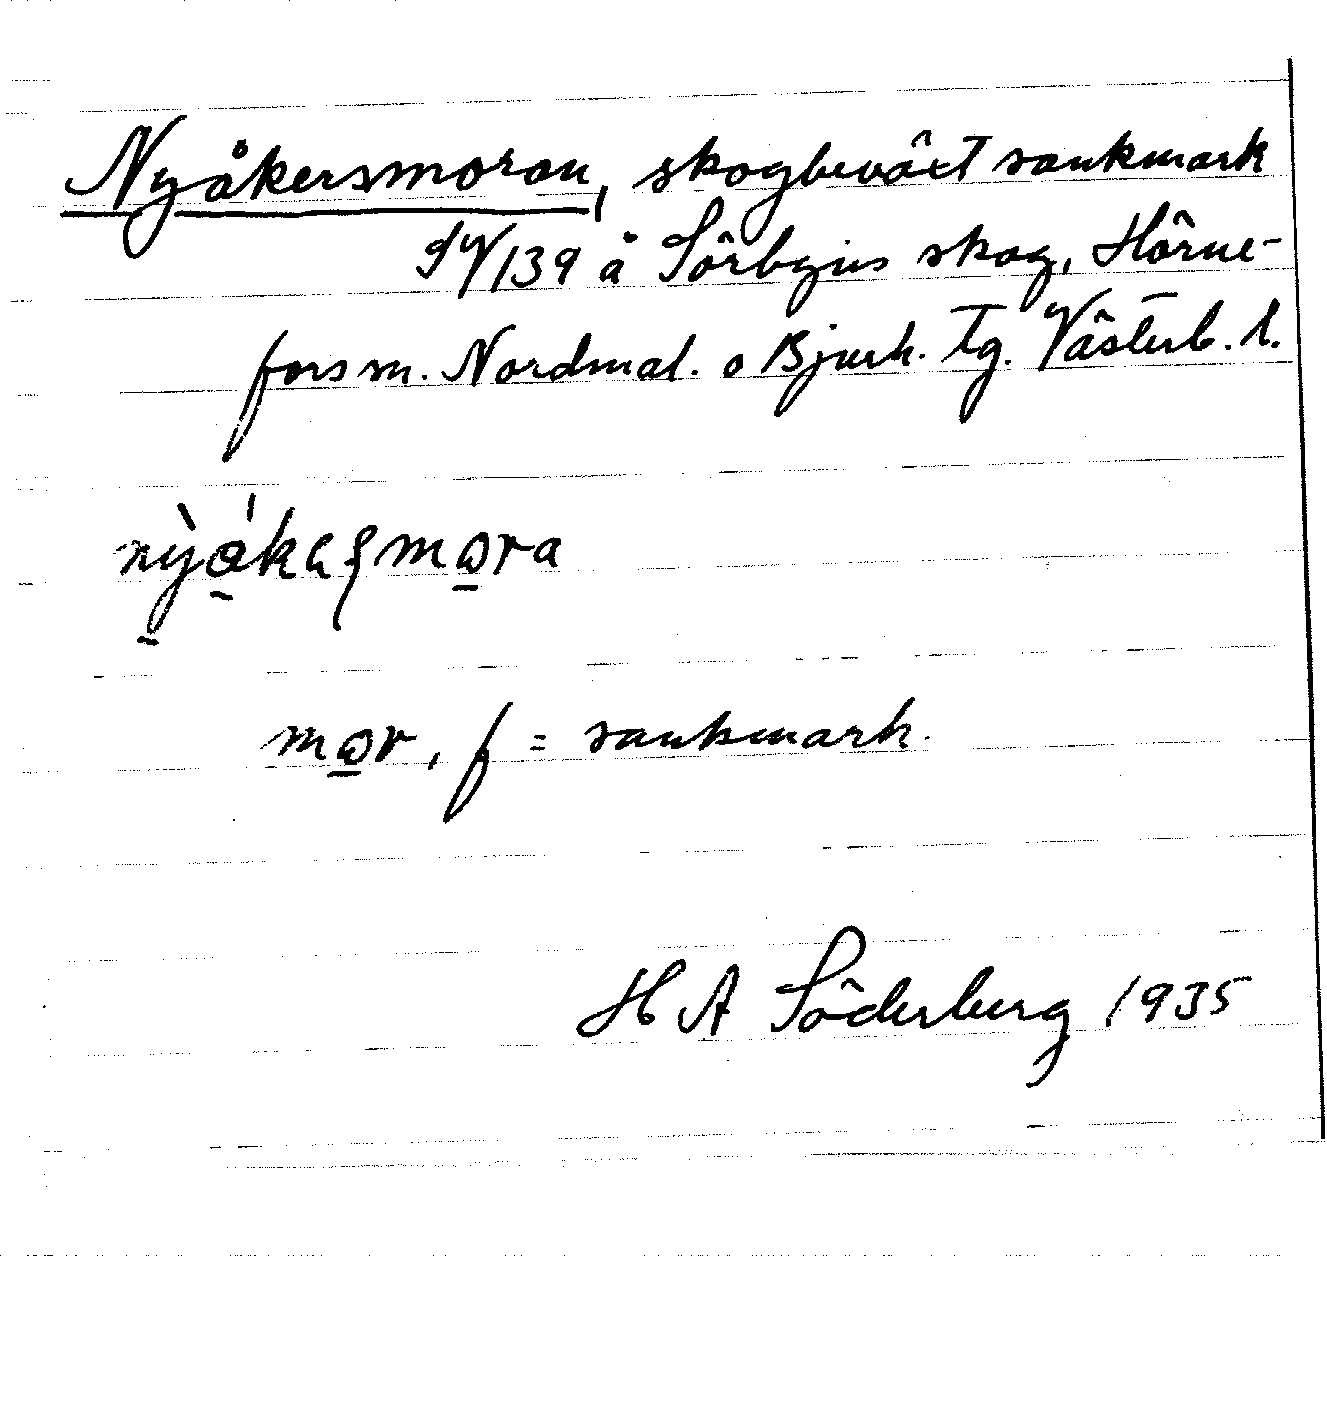 Nyåkersmoran, skogbeväxt sankmark
SV/139 å Sörbyns skog, Hörne-
fors sn. Nordmal. o Bjurh. Tg. Västerb. l.
mor, f = sankmark.
H A Söderberg 1935